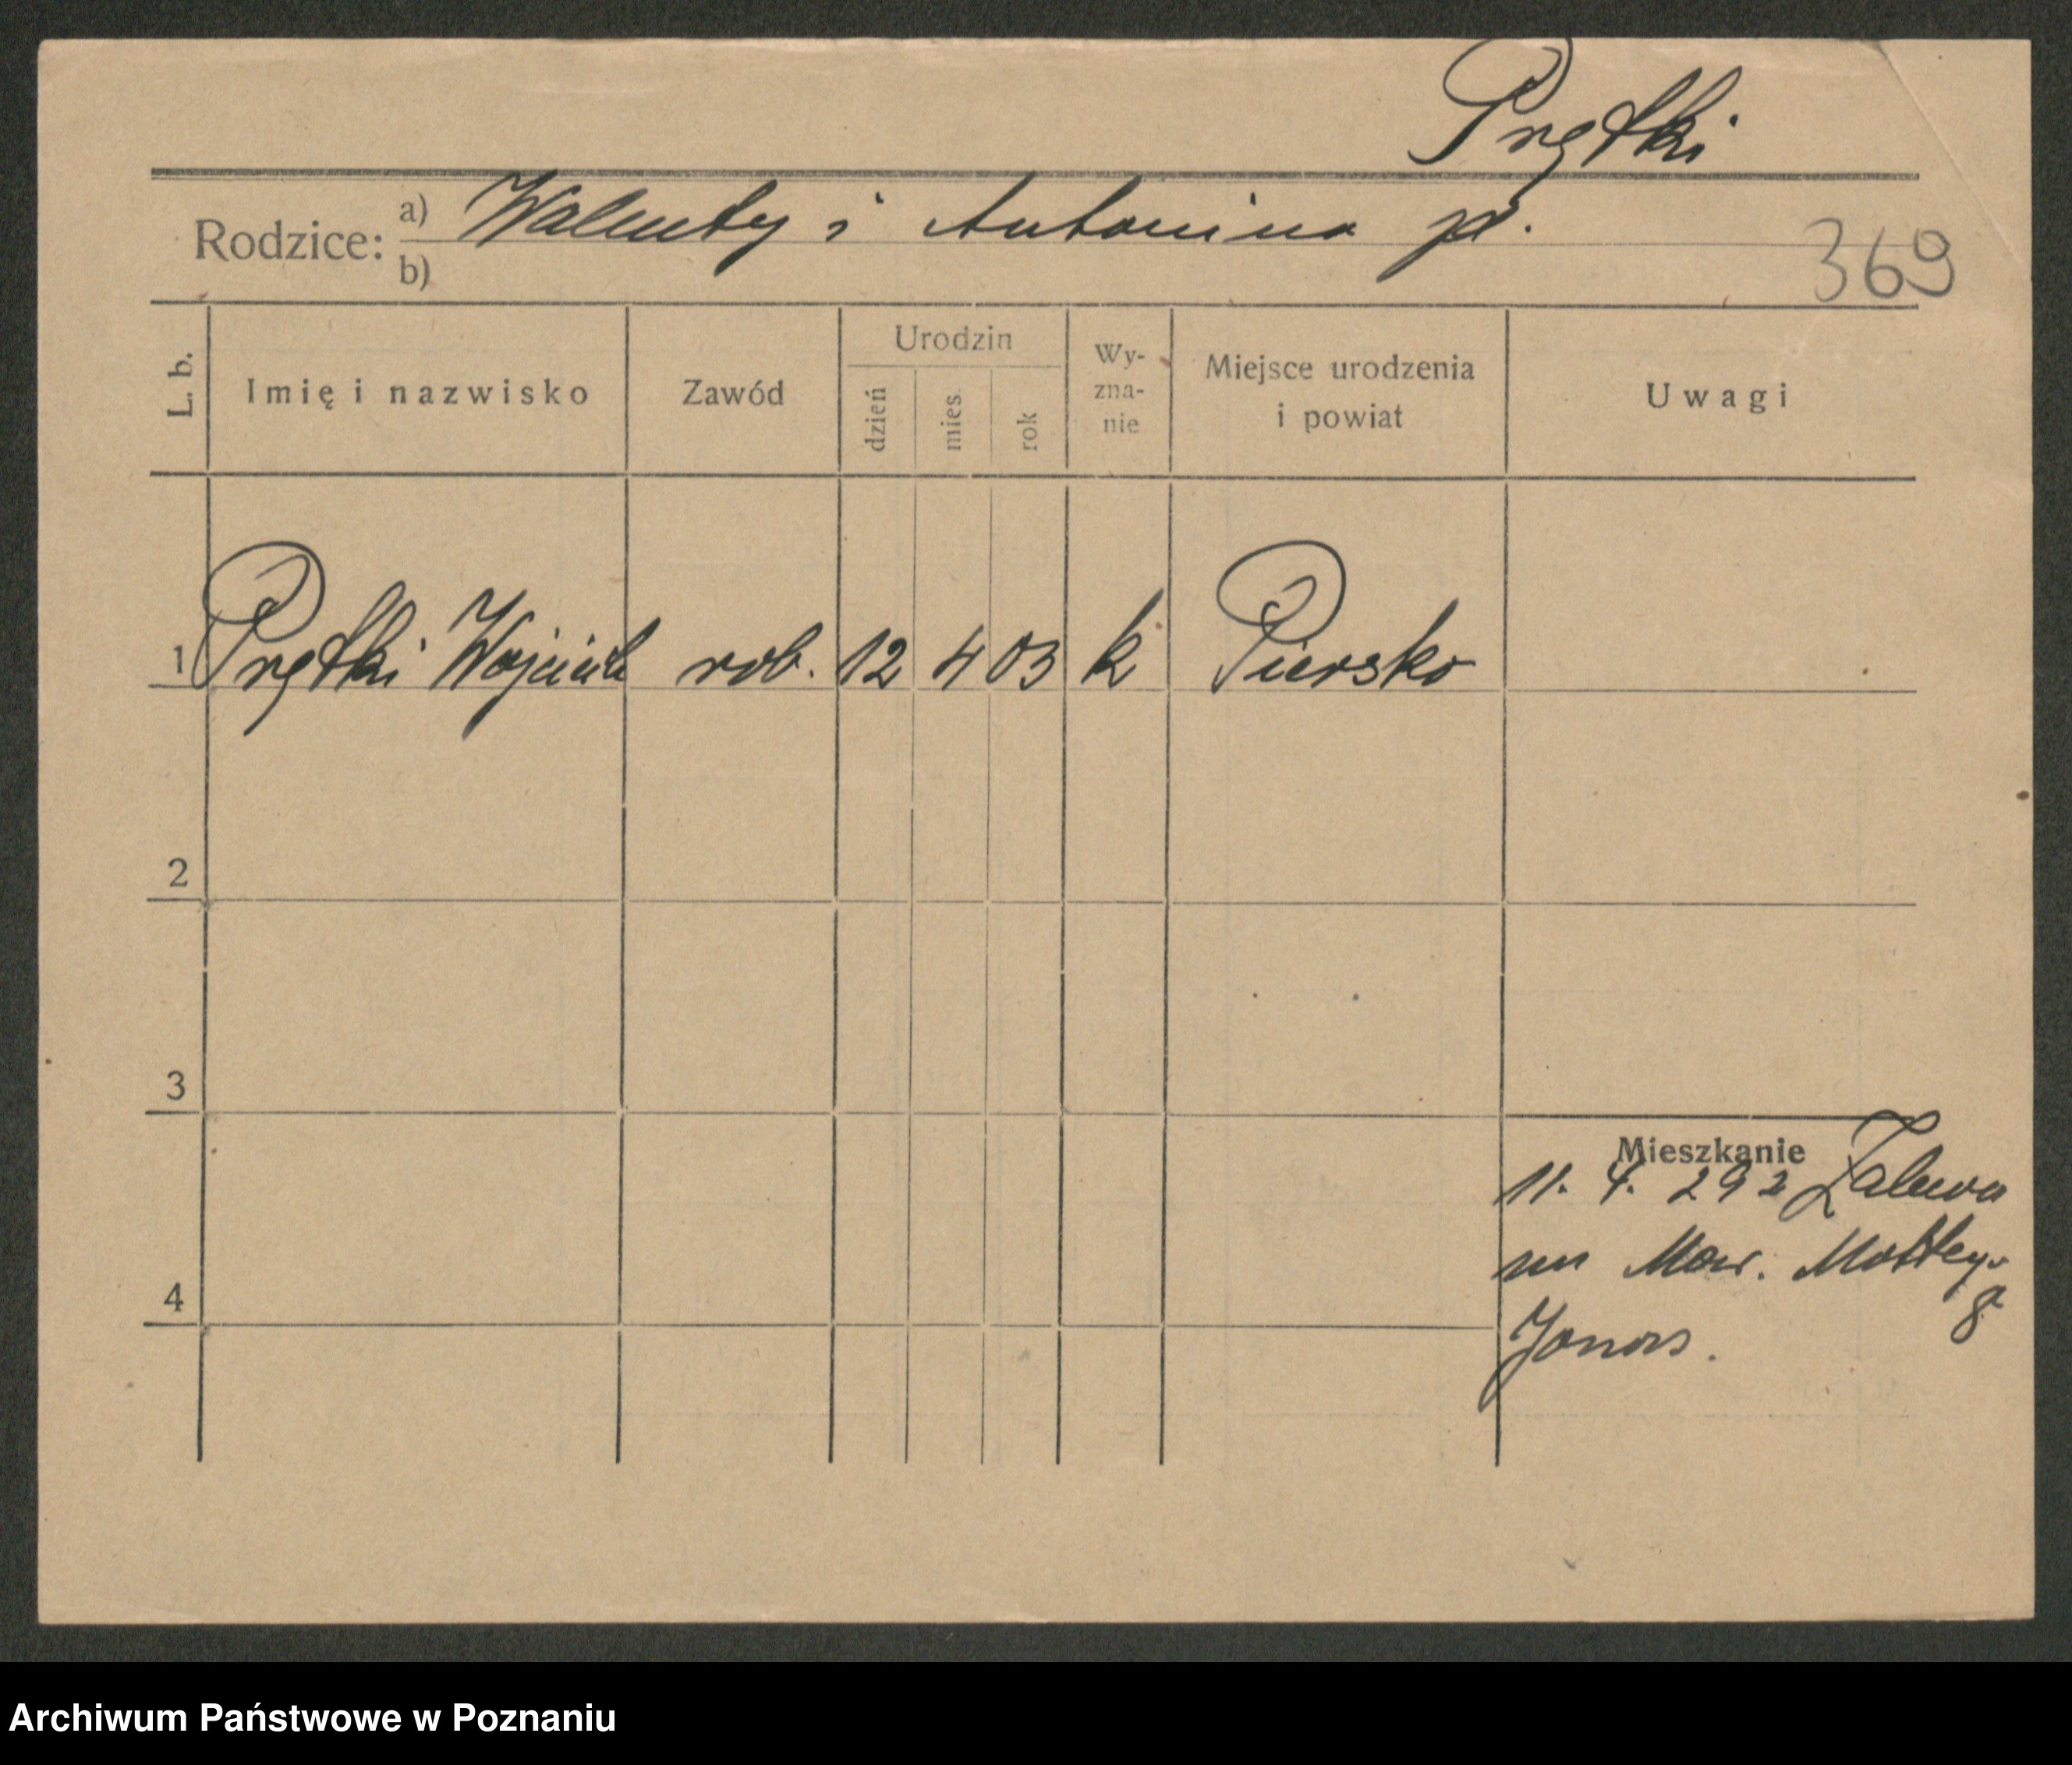 Prętki
Rodzice: a) Walenty i Antonina
b)
369
L. b. Imię i nazwisko Zawód Urodzin dzień mies. rok Wy-zna-nie Miejsce urodzenia i powiat Uwagi
1 Prętki Wojciech rob. 12 4 03 k Piersko
2
3
Mieszkanie
11. 4. 29 z Zalewa
4
Archiwum Państwowe w Poznaniu